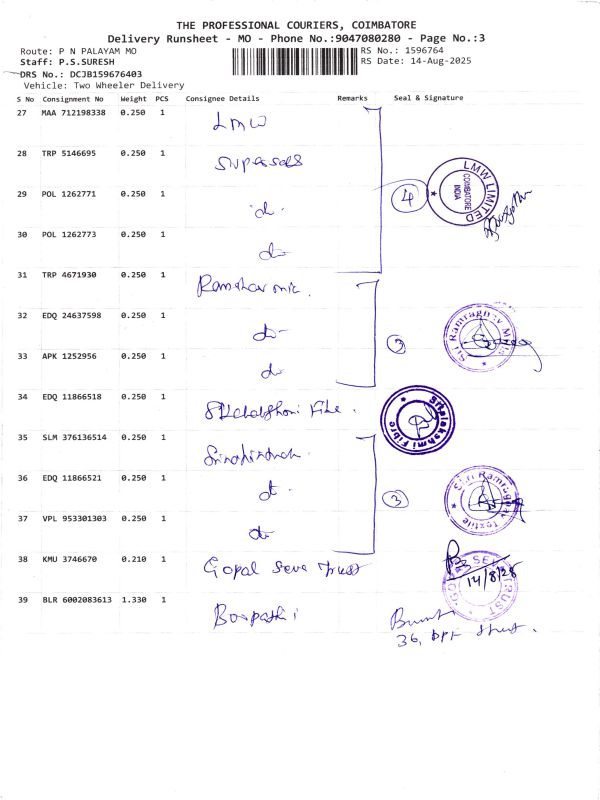 THE PROFESSIONAL COURIERS, COIMBATORE
Delivery Runsheet - MO - Phone No.:9047080280 - Page No.:3
Route: P N PALAYAM MO
Staff: P.S.SURESH
DRS No.: DCJB159676403
Vehicle: Two Wheeler Delivery
RS No.: 1596764
RS Date: 14-Aug-2025
S No Consignment No Weight PCS Consignee Details Remarks Seal & Signature
27 MAA 712198338 0.250 1 LMW
28 TRP 5146695 0.250 1
29 POL 1262771 0.250 1 do.
4
LMW LIMITED
COIMBATORE
INDIA
30 POL 1262773 0.250 1 do
31 TRP 4671930 0.250 1
32 EDQ 24637598 0.250 1 do
33 APK 1252956 0.250 1 do
Sri Ramraghav Mills
34 EDQ 11866518 0.250 1
Srilakshmi Fibre
35 SLM 376136514 0.250 1
36 EDQ 11866521 0.250 1 do
3
Shri Ramraghav Textile
37 VPL 953301303 0.250 1 do
38 KMU 3746670 0.210 1 Gopal Seva Trust
14/8/25
39 BLR 6002083613 1.330 1 Boopathi
36,